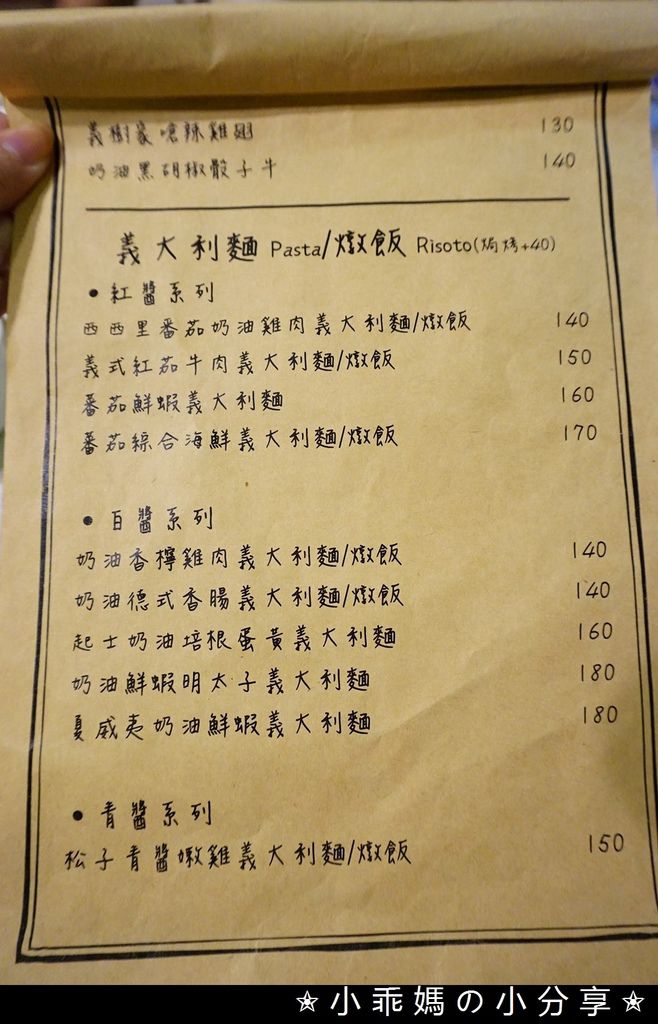 義樹家嗆辣雞翅 130
奶油黑胡椒骰子牛 140
義大利麵 Pasta/燉飯 Risoto(焗烤+40)
•紅醬系列
西西里番茄奶油雞肉義大利麵/燉飯 140
義式紅茄牛肉義大利麵/燉飯 150
番茄鮮蝦義大利麵 160
番茄綜合海鮮義大利麵/燉飯 170
•白醬系列
奶油香檸雞肉義大利麵/燉飯 140
奶油德式香腸義大利麵/燉飯 140
起士奶油培根蛋黃義大利麵 160
奶油鮮蝦明太子義大利麵 180
夏威夷奶油鮮蝦義大利麵 180
•青醬系列
松子青醬嫩雞義大利麵/燉飯 150
✯小乖媽の小分享✯